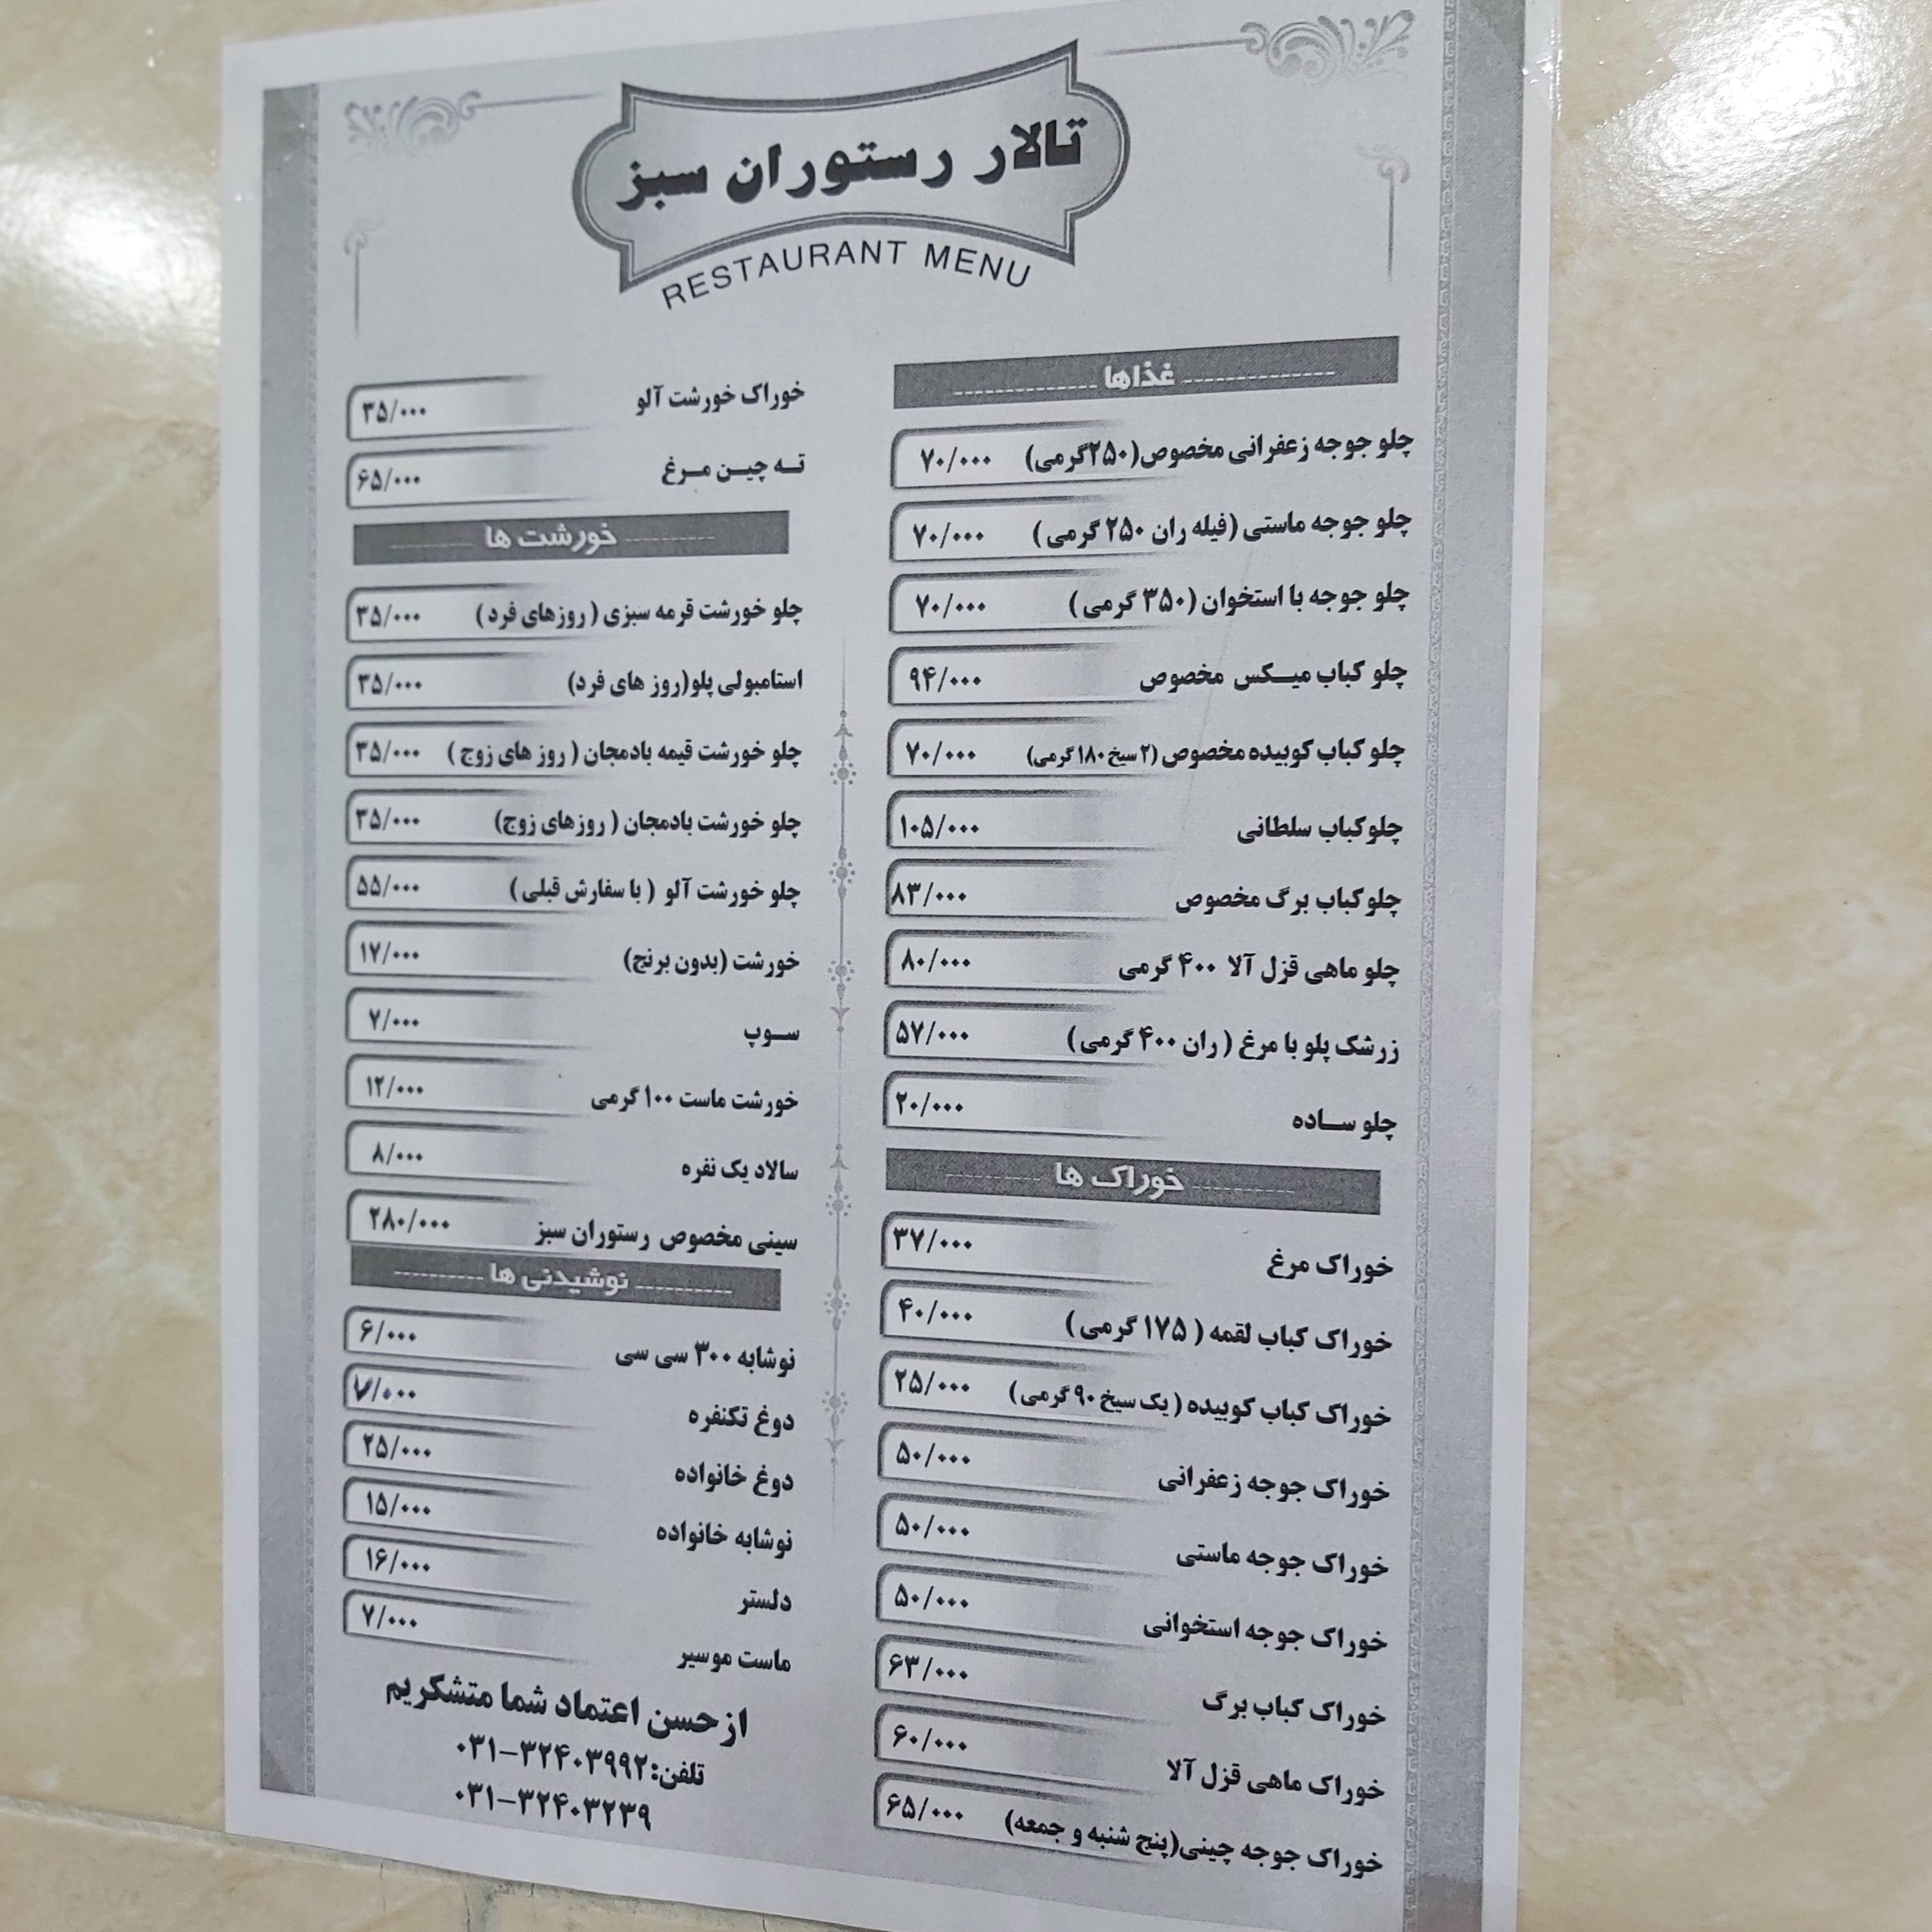 تالار رستوران سبز
RESTAURANT MENU
غذاها
چلو جوجه زعفرانی مخصوص(۲۵۰گرمی) ۷۰/۰۰۰
چلو جوجه ماستی (فیله ران ۲۵۰ گرمی) ۷۰/۰۰۰
چلو جوجه با استخوان (۳۵۰ گرمی) ۷۰/۰۰۰
چلو کباب میکس مخصوص ۹۴/۰۰۰
چلو کباب کوبیده مخصوص (۲ سیخ ۱۸۰ گرمی) ۷۰/۰۰۰
چلوکباب سلطانی ۱۰۵/۰۰۰
چلوکباب برگ مخصوص ۸۳/۰۰۰
چلو ماهی قزل آلا ۴۰۰ گرمی ۸۰/۰۰۰
زرشک پلو با مرغ (ران ۴۰۰ گرمی) ۵۷/۰۰۰
چلو ساده ۲۰/۰۰۰
خوراک ها
خوراک مرغ ۳۷/۰۰۰
خوراک کباب لقمه (۱۷۵ گرمی) ۴۰/۰۰۰
خوراک کباب کوبیده (یک سیخ ۹۰ گرمی) ۲۵/۰۰۰
خوراک جوجه زعفرانی ۵۰/۰۰۰
خوراک جوجه ماستی ۵۰/۰۰۰
خوراک جوجه استخوانی ۵۰/۰۰۰
خوراک کباب برگ ۶۳/۰۰۰
خوراک ماهی قزل آلا ۶۰/۰۰۰
خوراک جوجه چینی(پنج شنبه و جمعه) ۶۵/۰۰۰
خوراک خورشت آلو ۳۵/۰۰۰
ته چین مرغ ۶۵/۰۰۰
خورشت ها
چلو خورشت قرمه سبزی (روزهای فرد) ۳۵/۰۰۰
استامبولی پلو(روز های فرد) ۳۵/۰۰۰
چلو خورشت قیمه بادمجان (روز های زوج) ۳۵/۰۰۰
چلو خورشت بادمجان (روزهای زوج) ۳۵/۰۰۰
چلو خورشت آلو (با سفارش قبلی) ۵۵/۰۰۰
خورشت (بدون برنج) ۱۷/۰۰۰
سوپ ۷/۰۰۰
خورشت ماست ۱۰۰ گرمی ۱۲/۰۰۰
سالاد یک نفره ۸/۰۰۰
سینی مخصوص رستوران سبز ۲۸۰/۰۰۰
نوشیدنی ها
نوشابه ۳۰۰ سی سی ۶/۰۰۰
دوغ تکنفره ۷/۰۰۰
دوغ خانواده ۲۵/۰۰۰
نوشابه خانواده ۱۵/۰۰۰
دلستر ۱۶/۰۰۰
ماست موسیر ۷/۰۰۰
ازحسن اعتماد شما متشکریم
تلفن:۰۳۱-۳۲۴۰۳۹۹۲
۰۳۱-۳۲۴۰۳۲۳۹